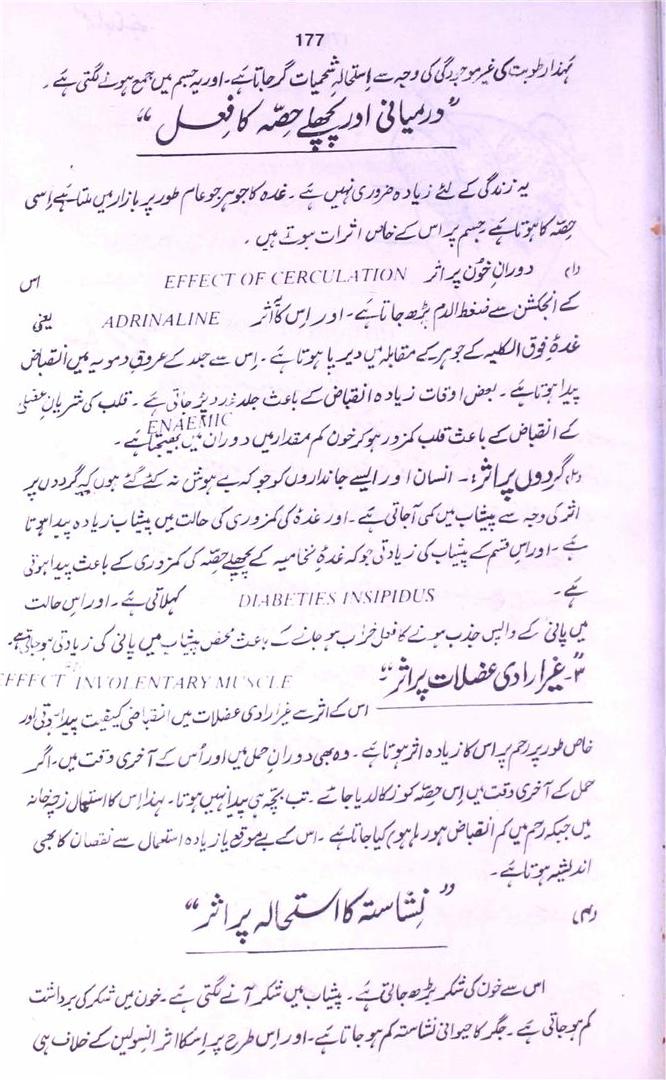 177
لہذا رطوبت کی غیر موجودگی کی وجہ سے اِستحالہ شحمیات گر جاتا ہے۔ اور یہ جسم میں جمع ہونے لگتی ہے۔
"درمیانی اور پچھلے حِصّہ کا فِعل"
یہ زندگی کے لئے زیادہ ضروری نہیں ہے۔ غدہ کا جوہر جو عام طور پر بازار میں ملتا ہے اِسی
حِصّہ کا ہوتا ہے جسم پر اس کے خاص اثرات ہوتے ہیں۔
(۱) دورانِ خُون پر اثر EFFECT OF CERCULATION اس
کے انجکشن سے ضغط الدم بڑھ جاتا ہے۔ اور اِس کا اَثر ADRINALINE یعنی
غدۂ فوق الکلیہ کے جوہر کے مقابلہ میں دیر پا ہوتا ہے۔ اِس سے جلد کے عروقِ دمویہ میں انقباض
پیدا ہوتا ہے۔ بعض اوقات زیادہ انقباض کے باعث جلد زرد پڑ جاتی ہے۔ قلب کی شریانِ عضلی
ENAEMIC
کے انقباض کے باعث قلب کمزور ہو کر خون کم مقدار میں دوران میں بھیجتا ہے۔
(۲) گردوں پر اثر:۔ انسان اور ایسے جانداروں کو جو کہ بے ہوش نہ کئے گئے ہوں کہ گردوں پر
اثر کی وجہ سے پیشاب میں کمی آجاتی ہے۔ اور غدۂ کی کمزوری کی حالت میں پیشاب زیادہ پیدا ہوتا
ہے۔ اور اس قسم کے پیشاب کی زیادتی جو کہ غدۂ نخامیہ کے پچھلے حِصّہ کی کمزوری کے باعث پیدا ہوتی
ہے۔ DIABETIES INSIPIDUS کہلاتی ہے۔ اور اس حالت
میں پانی کے واپس جذب ہونے کا فعل خراب ہو جانے کے باعث محض پیشاب میں پانی کی زیادتی ہو جاتی ہے۔
"۳۔ غیر ارادی عضلات پر اثر" EFFECT INVOLENTARY MUSCLE
اس کے اثر سے غیر ارادی عضلات میں انقباضی کیفیت پیدا ہوتی اور
خاص طور پر رحم پر اس کا زیادہ اثر ہوتا ہے۔ وہ بھی دورانِ حمل میں اور اُس کے آخری وقت میں۔ اگر
حمل کے آخری وقت میں اِس حِصّہ کو نکال دیا جائے۔ تب بچّہ ہی پیدا نہیں ہوتا۔ لہذا اِس کا استعمال زچہ خانہ
میں جبکہ رحم میں کم انقباض ہو رہا ہو، کیا جاتا ہے۔ اس کے بے موقع یا زیادہ استعمال سے نقصان کا بھی
اندیشہ ہوتا ہے۔
(۴) "نِشاستہ کا استحالہ پر اثر"
اس سے خون کی شکر بڑھ جاتی ہے۔ پیشاب میں شکر آنے لگتی ہے۔ خون میں شکر کی برداشت
کم ہو جاتی ہے۔ جگر کا حیوانی نشاستہ کم ہو جاتا ہے۔ اور اِس طرح پر اِسکا اثر انسولین کے خلاف ہی